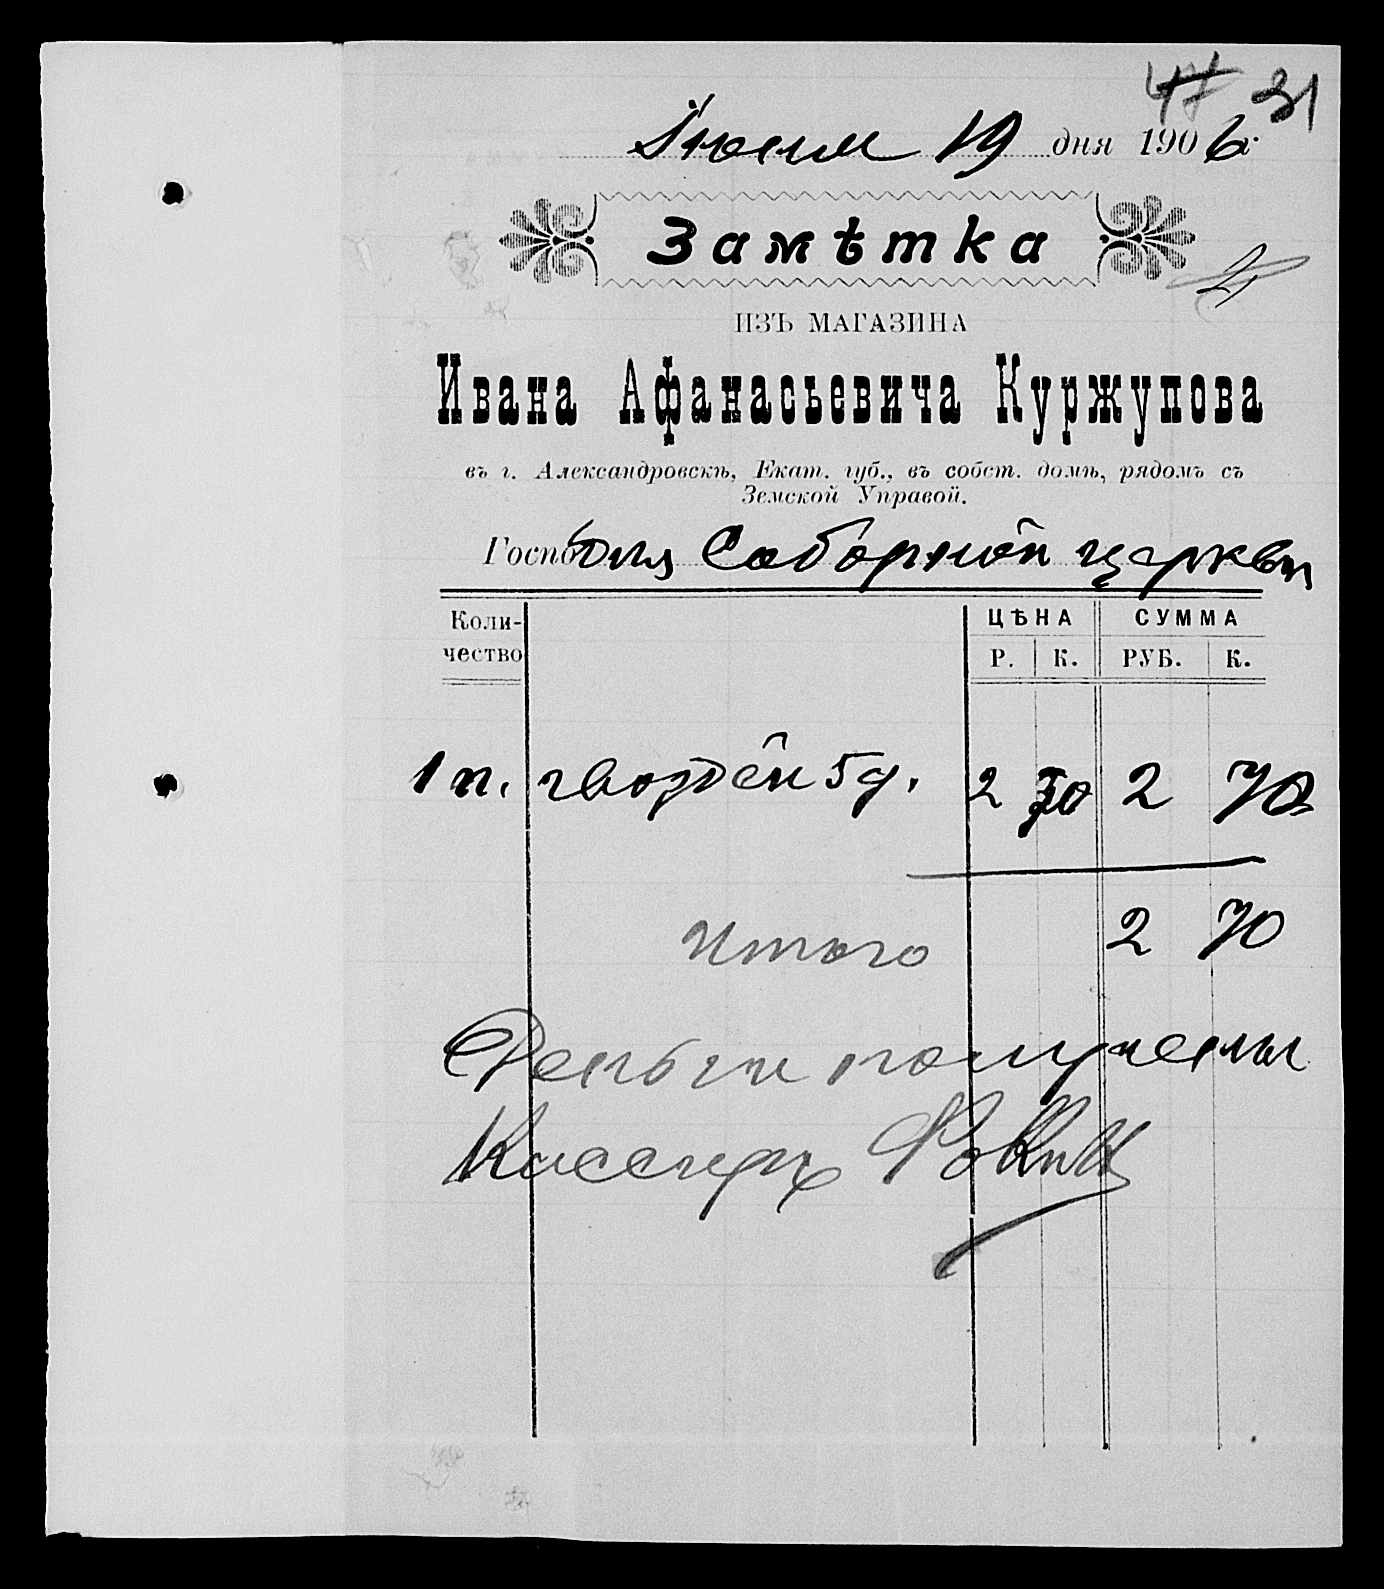 47 31
Іюля 19 дня 1906 г.
Замѣтка
4
ИЗЪ МАГАЗИНА
Ивана Афанасьевича Куржупова
въ г. Александровскѣ, Екат. губ., въ собст. домѣ, рядомъ съ
Земской Управой.
Госпо для Соборной церкви
Коли- ЦѢНА СУММА
чество Р. К. РУБ. К.
1 п. гвоздей 5 д. 2 70 2 70
Итого 2 70
Деньги получены
Кассиръ